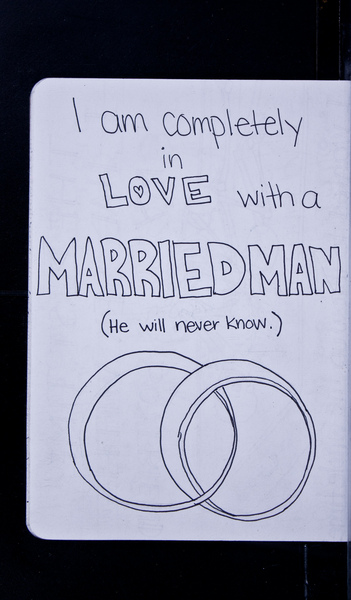 I am completely
in
LOVE with a
MARRIED MAN
(He will never know.)